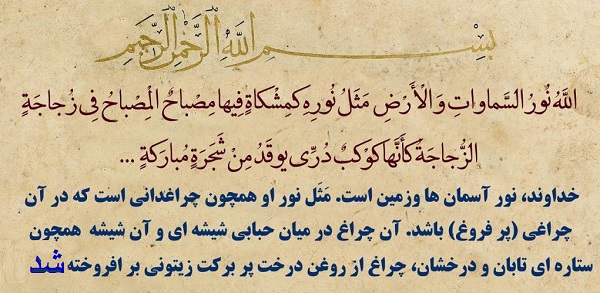 بِسْمِ اللَّهِ الرَّحْمَنِ الرَّحِيمِ
اللَّهُ نُورُ السَّمَاوَاتِ وَالْأَرْضِ مَثَلُ نُورِهِ كَمِشْكَاةٍ فِيهَا مِصْبَاحٌ الْمِصْبَاحُ فِي زُجَاجَةٍ
الزُّجَاجَةُ كَأَنَّهَا كَوْكَبٌ دُرِّيٌّ يُوقَدُ مِنْ شَجَرَةٍ مُبَارَكَةٍ ...
خداوند، نور آسمان ها وزمین است. مَثل نور او همچون چراغدانی است که در آن
چراغی (پر فروغ) باشد. آن چراغ در میان حبابی شیشه ای و آن شیشه همچون
ستاره ای تابان و درخشان، چراغ از روغن درخت پر برکت زیتونی بر افروخته شد